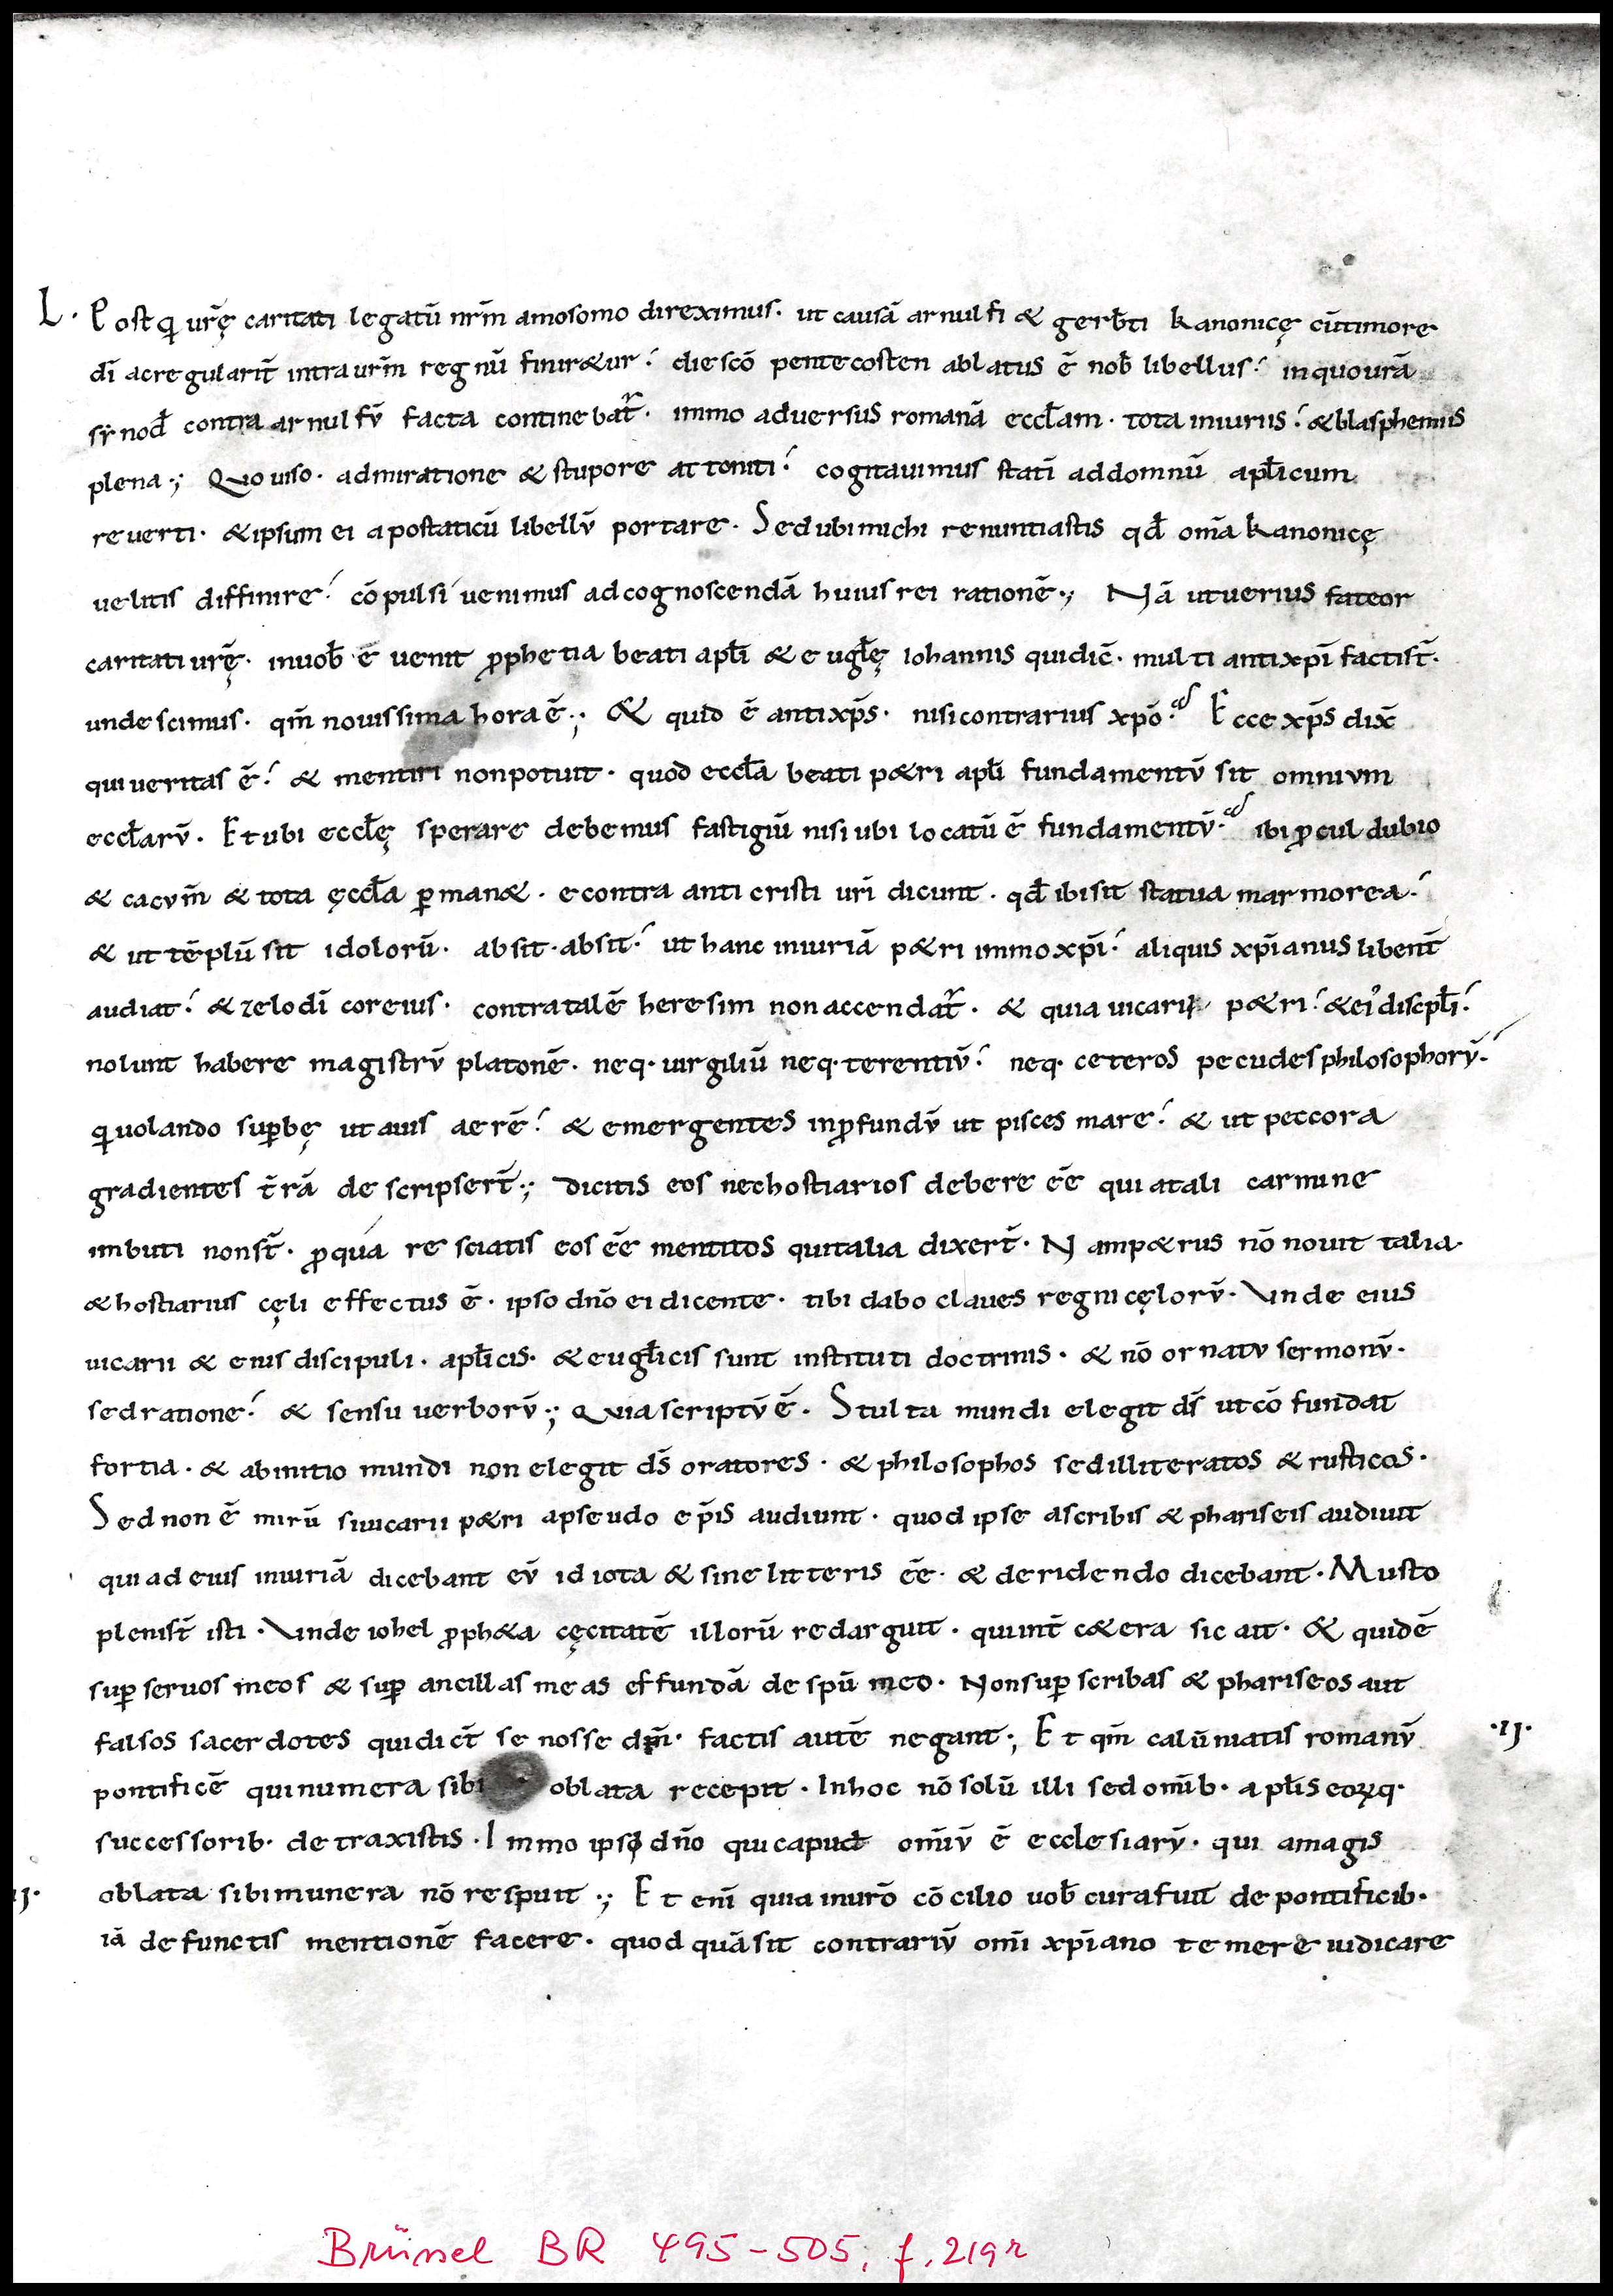 L· Postq̃ urę̃ caritati legatũ nr̃m amosomo direximus· ut causã arnulfi & gerb̃ti kanonicę cũtimore
dĩ acregularit̃ intraur̃m regnũ finir&ur· diescõ pentecosten ablatus ẽ nob̃ libellus· inquourã
sẏnod̃ contra arnulfũ facta continebat̃· immo aduersus romanã eccl̃am· tota iniuriis· &blasphemiis
plena·; Quo uiso· admiratione & stupore attoniti· cogitauimus statĩ addomnũ apl̃icum
reuerti· &ipsum ei apostaticũ libellũ portare· Sedubimichi renuntiastis qd̃ om̃a kanonicę
uelitis diffinire· cõpulsi uenimus adcognoscendã huius rei rationẽ·; Nã utuerius fateor
caritati urę̃· inuob̃ ẽ uenit p̃phetia beati apl̃i & eugl̃ę iohannis quidic̃· multi antixpĩ factist̃·
undescimus· qm̃ nouissima hora ẽ·; & quid ẽ antixp̃s· nisicontrarius xpõ· Ecce xp̃s dix̃
quiueritas ẽ· & mentiri nonpotuit· quod eccl̃a beati p&ri apl̃i fundamentũ sit omnium
eccl̃arũ· Et ubi eccl̃ę sperare debemus fastigiũ nisi ubi locatũ ẽ fundamentũ· ibi p̃cul dubio
& cacum̃ & tota ęccl̃a p̃man&· econtra anticristi urĩ dicunt· qd̃ ibisit statua marmorea·
& ut tẽplũ sit idolorũ· absit·absit· ut hanc iniuriã p&ri immoxpĩ· aliquis xpĩanus libent̃
audiat· & zelodĩ coreius· contratalẽ heresim nonaccendat̃· & quia uicarii p&ri· &ei᾽ discipl̃i·
nolunt habere magistrũ platonẽ· neq· uirgiliũ neq·terentiũ· neq· ceteros pecudesphilosophorũ·
q̃uolando sup̃bę utauis aerẽ· & emergentes inp̃fundũ ut pisces mare· & ut peccora
gradientes t̃rã descripsert̃·; dicitis eos nechostiarios debere ẽẽ qui atali carmine
imbuti nonst̃· p̃quá re sciatis eos ẽẽ mentitos quitalia dixert̃· Namp&rus nõ nouit talia·
&hostiarius cęli effectus ẽ· ipso dño ei dicente· tibi dabo claues regni cęlorũ· Vnde eius
uicarii & eius discipuli· apl̃icis· &eugl̃icis sunt instituti doctrinis· & nõ ornatu sermonũ·
sedratione· & sensu uerborũ·; Quia scriptũ ẽ· Stulta mundi elegit ds̃ utcõfundat
fortia· & abinitio mundi non elegit ds̃ oratores· & philosophos sedilliteratos & rusticos·
Sed non ẽ mirũ siuicarii p&ri apseudo ep̃is audiunt· quod ipse ascribis & phariseis audiuit
qui ad eius iniuriã dicebant eũ idiota & sine litteris ẽẽ· & deridendo dicebant· Musto
plenist̃ isti· Vnde iohel p̃ph&a cęcitatẽ illorũ redarguit· quiint̃ c&era sic ait· & quidẽ
sup̃ seruos meos & sup̃ ancillas meas effundã de spũ meo· Nonsup̃ scribas & phariseos aut
falsos sacerdotes quidict̃ se nosse dm̃· factis autẽ negant·; Et qm̃ calũniatis romanũ ·IJ·
pontificẽ quinumera sibi oblata recepit· Inhoc nõ solũ illi sedomĩb· apl̃is eoꝝq·
successorib· detraxistis· Immo ipso dño qui capud om̃iũ ẽ ecclesiarũ· qui amagis
IJ· oblata sibimunera nõ respuit·; Et enĩ quia inurõ cõcilio uob̃ curafuit de pontificib·
iã defunctis mentionẽ facere· quod quãsit contrariũ om̃i xpĩano temere iudicare
Brüssel BR 495-505, f. 219r